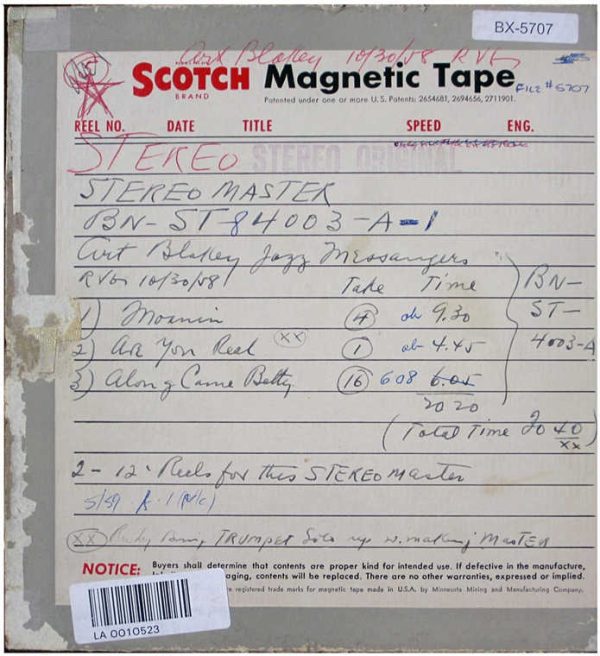 BX-5707
Art Blakey 10/30/58 RVG
SCOTCH Magnetic Tape
BRAND
FILE # 5707
Patented under one or more U.S. Patents: 2654681, 2694656, 2711901.
REEL NO. DATE TITLE SPEED ENG.
STEREO STEREO ORIGINAL
STEREO MASTER
BN-ST-84003-A-1
Art Blakey Jazz Messengers
RVG 10/30/58 Take Time BN-
1) Moanin 4 ok 9.30 ST-
2) Are You Real XX 1 ok 4.45 4003-A
3) Along Came Betty 16 608 6.05
20 20
(Total Time 20 40)
XX
2 - 12" Reels for this STEREO Master
5/59
XX Rudy Bring TRUMPET Solo up w. making MASTER
NOTICE: Buyers shall determine that contents are proper kind for intended use. If defective in the manufacture,
aging, contents will be replaced. There are no other warranties, expressed or implied.
re registered trade marks for magnetic tape made in U.S.A. by Minnesota Mining and Manufacturing Company.
LA 0010523